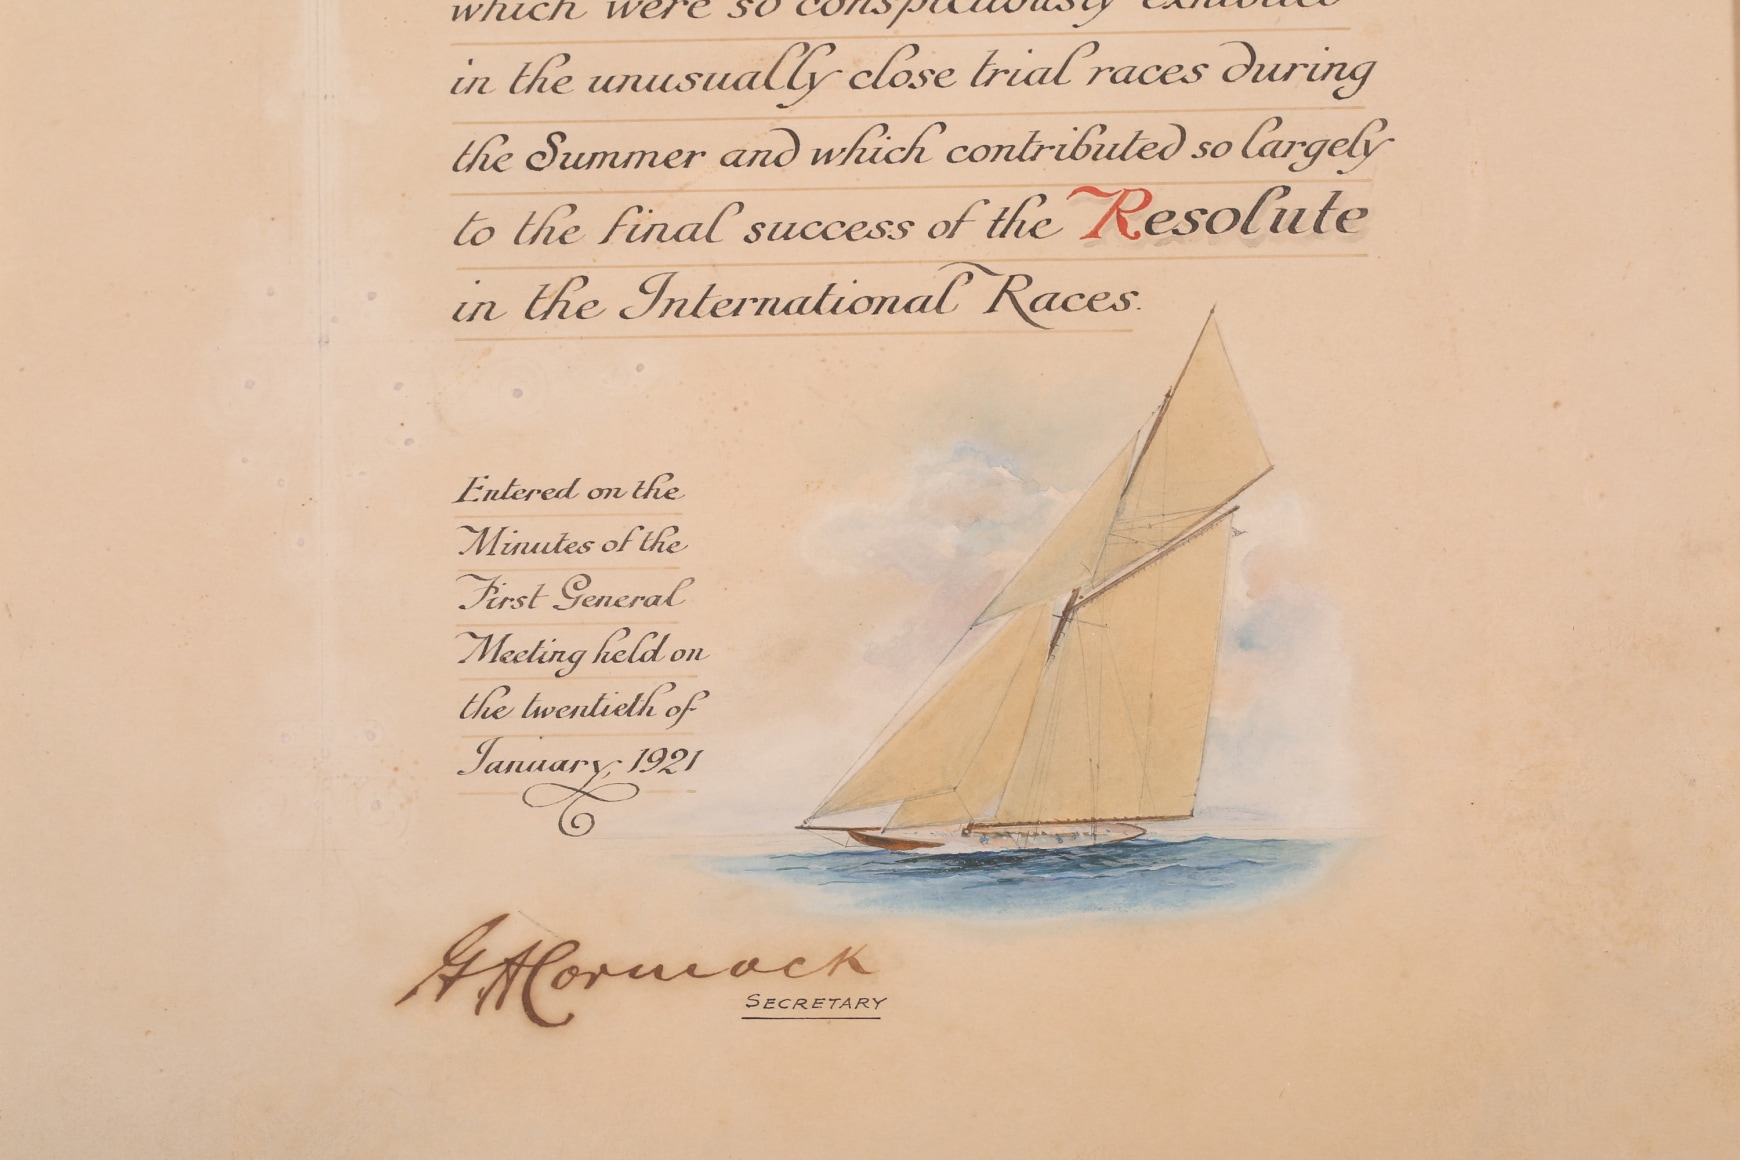 which were so conspicuously exhibited
in the unusually close trial races during
the Summer and which contributed so largely
to the final success of the Resolute
in the International Races.
Entered on the
Minutes of the
First General
Meeting held on
the twentieth of
January, 1921
G A Cormack
SECRETARY